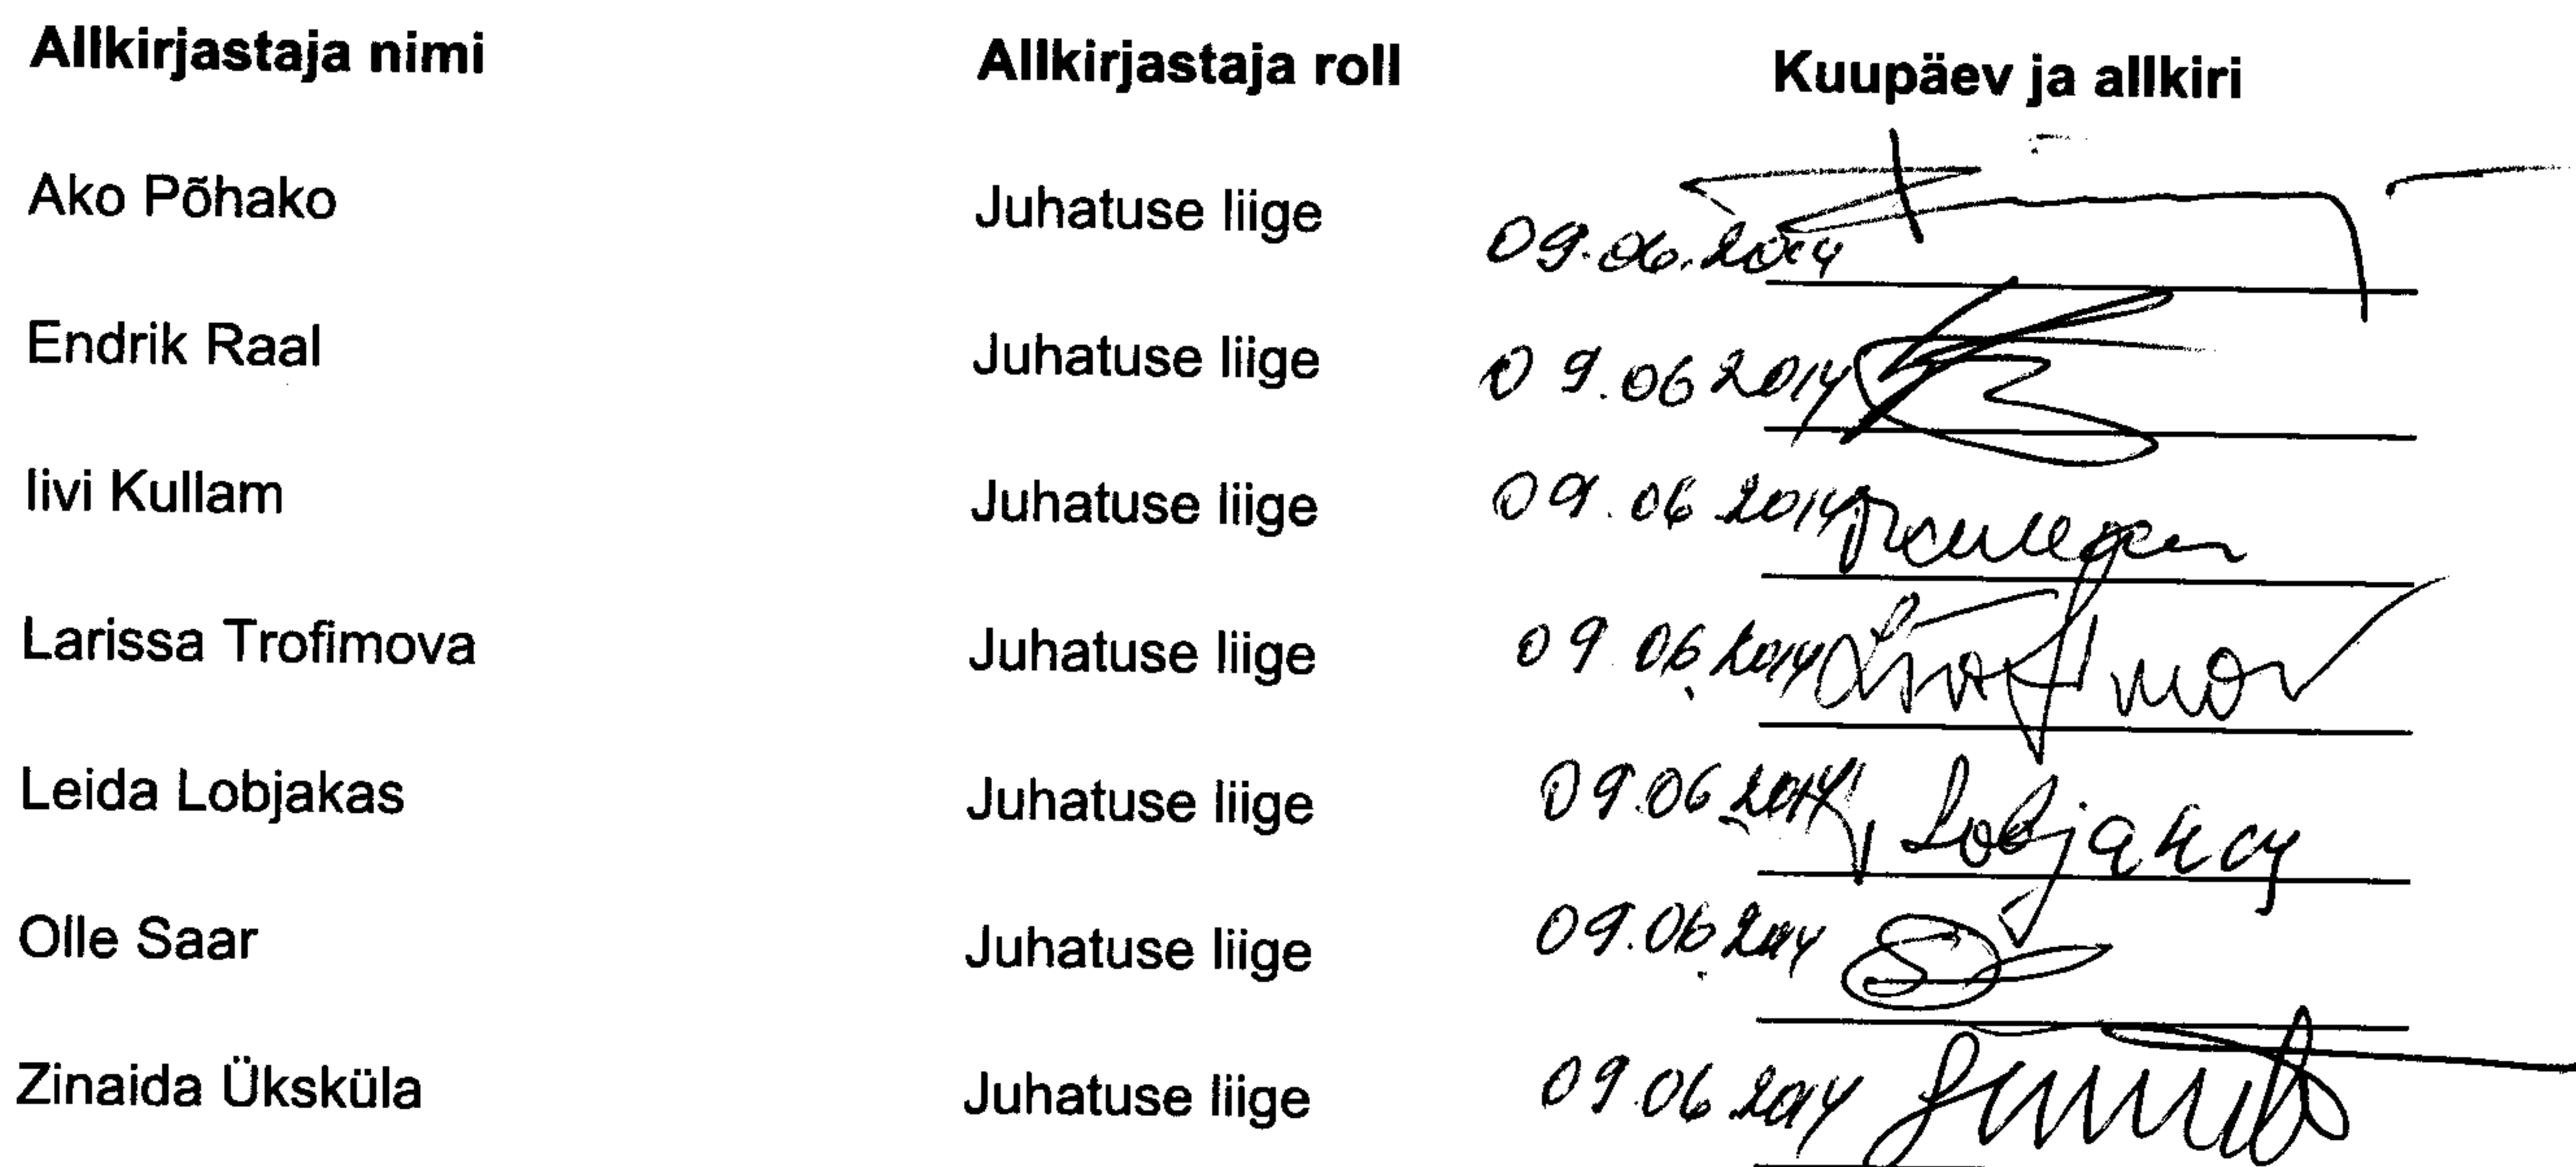 Allkirjastaja nimi Allkirjastaja roll Kuupäev ja allkiri
Ako Põhako Juhatuse liige 09.06.2014
Endrik Raal Juhatuse liige 09.06 2014
Iivi Kullam Juhatuse liige 09.06 2014
Larissa Trofimova Juhatuse liige 09 06.2014
Leida Lobjakas Juhatuse liige 09.06 2014 Lobjakas
Olle Saar Juhatuse liige 09.06.2014
Zinaida Üksküla Juhatuse liige 09.06 2014